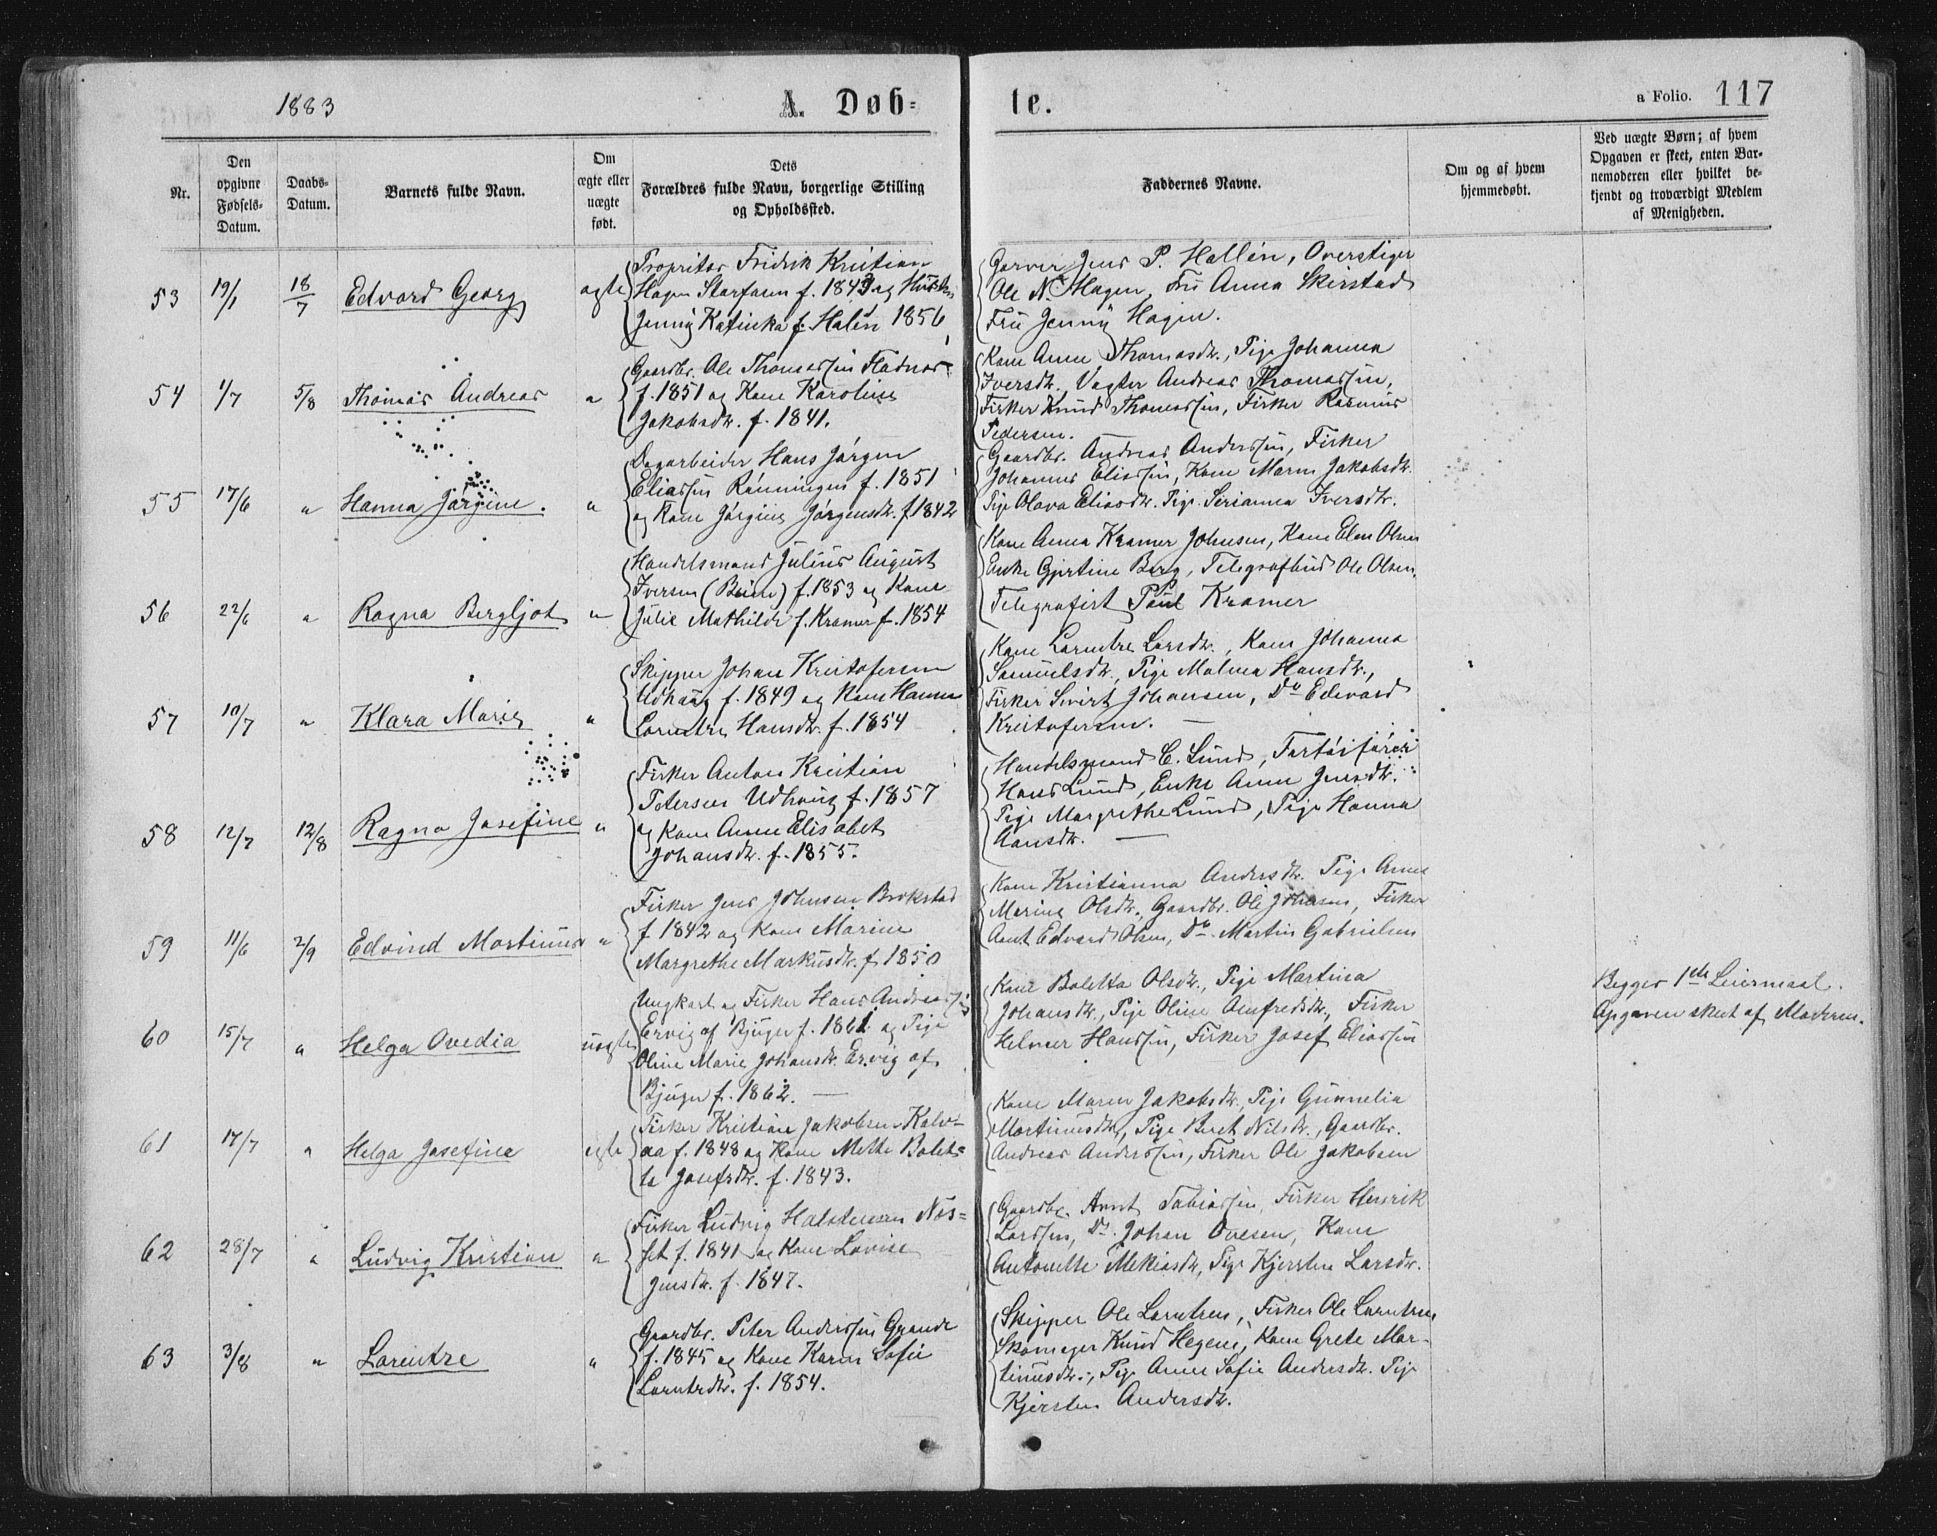 1883
A. Døb-
te.
a Folio. 117
Nr.
Den opgivne Fødsels-Datum.
Daabs-Datum.
Barnets fulde Navn.
Om ægte eller uægte født.
Dets Forældres fulde Navn, borgerlige Stilling og Opholdssted.
Faddernes Navne.
Om og af hvem hjemmedøbt.
Ved uægte Børn; af hvem Opgaven er skeet, enten Barnemoderen eller hvilket bekjendt og troværdigt Medlem af Menigheden.
53 19/1 18/7 Edvard Georg ægte
Propritær Fridrik Kristian
Hagen Storfasen f. 1843 og Hustru
Jenny Katinka f. Halén 1856
Garver Jens P. Hallén, Overstiger
Ole N. Hagen, Fru Anna Skirstad
Fru Jenny Hagen.
54 1/7 5/8 Thomas Andreas "
Gaardbr. Ole Thomassen Fladnes
f. 1851 og Kone Karoline
Jakobsdtr. f. 1841.
Kone Anne Thomasdtr., Pige Johanna
Iversdtr. Vagter Andreas Thomassen,
Fisker Knud Thomassen, Fisker Rasmus
Pedersen.
55 17/6 " Hanna Jørgine. "
Dagarbeider Hans Jørgen
Eliassen Rønningen f. 1851
og Kone Jørgine Jørgensdtr. f. 1842
Gaardbr. Andreas Anderssen, Fisker
Johannes Eliassen, Kone Maren Jakobsdtr.
Pige Olava Eliasdtr. Pige Serianna Iversdtr.
56 22/6 " Ragna Bergljot "
Handelsmand Julius August
Iversen f. 1853 og Kone
Julie Mathilde f. Kramer f. 1854
Kone Anna Kramer Johnsen, Kone Elen Olsen
Enke Gjertine Berg, Telegrafbud Ole Olsen,
Telegrafist Paul Kramer
57 10/7 " Klara Marie "
Skipper Johan Kristofersen
Udhaug f. 1849 og Kone Hanna
Lorentze Hansdtr. f. 1854
Kone Lorentze Larsdtr., Kone Johanna
Samuelsdtr., Pige Malena Hansdtr.,
Fisker Sivert Johansen, Do Edevard
Kristofersen.
58 12/7 12/8 Ragna Josefine "
Fisker Anton Kristian
Petersen Udhaug f. 1857
og Kone Anne Elisabet
Johansdtr. f. 1855.
Handelsmand C. Lund, Fartøifører
Hans Lund, Enke Anne Jensdtr.
Pige Margrethe Lund, Pige Hanna
Hansdtr.
59 11/6 2/9 Edvind Martinus "
Fisker Jens Johnsen Brekstad
f. 1842 og Kone Marine
Margrethe Markusdtr. f. 1850
Kone Kristianna Andersdtr. Pige Anne
Marine Olsdtr., Gaardbr. Ole Johnsen, Fisker
Arnt Edvard Olsen, Do Martin Gabrielsen
60 15/7 " Helga Ovedia uægte
Ungkarl og Fisker Hans Andreassen
Ervig af Bjugn f. 1861 og Pige
Oline Marie Johansdtr. Ervig af
Bjugn f. 1862.
Kone Boletta Olsdtr., Pige Martina
Johansdtr., Pige Oline Arnfredsdtr., Fisker
Helmer Hanssen, Fisker Josef Eliassen
Begges 1ste Leiermaal.
Opgaven skeet af Moderen.
61 17/7 " Helga Josefine ægte
Fisker Kristian Jakobsen Kalv-
aa f. 1848 og Kone Mette Bolet-
ta Josefsdtr. f. 1843.
Kone Maren Jakobsdtr., Pige Gunnelia
Martinusdtr., Pige Beret Nilsdtr., Gaardbr.
Andreas Anderssen, Fisker Ole Jakobsen
62 28/7 " Ludvig Kristian "
Fisker Ludvig Halstensen Næs-
set f. 1841 og Kone Lovise
Jensdtr. f. 1847.
Gaardbr. Arnt Tobiassen, Fisker Henrik
Larssen, Do Johan Ovesen, Kone
Antonette Mekiasdtr, Pige Kjersten Larsdtr.
63 3/8 " Lorentze "
Gaardbr. Peter Anderssen Grande
f. 1845 og Kone Karen Sofie
Lorntsdtr. f. 1854.
Skipper Ole Lorntzen, Fisker Ole Lorntzen
Skomager Knud Hegens, Kone Grete Mar-
tinusdtr., Pige Anne Sofie Andersdtr. Pige
Kjersten Andersdtr.